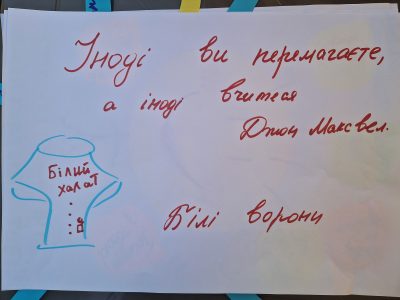 Іноді ви перемагаєте,
а іноді вчитеся
Джон Максвел.
Білий
халат
Білі ворони